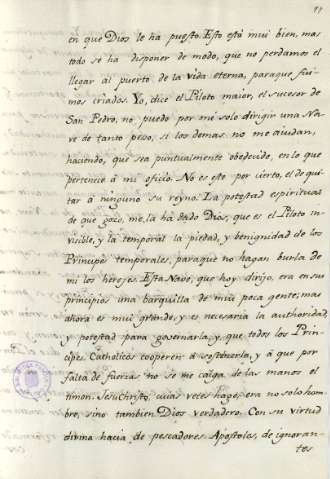 en que Dios le ha puesto. Esto està mui bien, mas
todo se ha disponer de modo, que no perdamos el
llegar al puerto de la vida eterna, paraque fui-
mos criados. Yo, dice el Piloto maior, el sucesor de
San Pedro, no puedo por mi solo dirigir una Na-
ve de tanto peso, si los demas no me aiudan,
haciendo, que sea puntualmente obedecido, en lo que
pertenece à mi oficio. No es este por cierto, el de qui-
tar à ninguno su reyno: La potestad espiritual
de que gozo, me la ha dado Dios, que es el Piloto in-
visible, y la temporal la piedad, y benignidad de los
Principes temporales, paraque no hagan burla de
mi los hereges. Esta Nave, que hoy dirijo, era en sus
principios una barquilla de mui poca gente; mas
ahora es mui grande, y es necesaria la authoridad,
y potestad para governarla, y que todos los Prin-
cipes Catholicos cooperen à sostenerla, y à que por
falta de fuerzas no se me caiga de las manos el
timon. Jesu Christo, cuias veces hago, era no solo hom-
bre, sino tambien Dios verdadero. Con su virtud
divina hacia de pescadores Apostoles, de ignoran-
tes